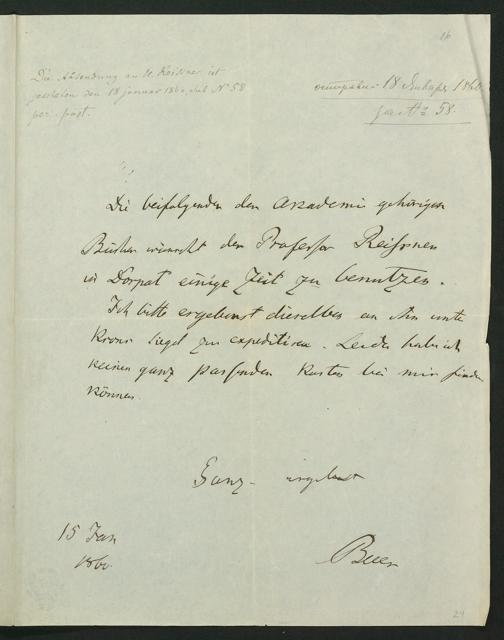 16
Die Absendung an H. Reissner ist
geschehen den 18 Januar 1860, sub № 58
per Post.
отправлено 18 Января 1860
за № 58.
Die beifolgenden der Akademie gehörigen
Bücher wünscht der Professor Reissner
in Dorpat einige Zeit zu benutzen.
Ich bitte ergebenst dieselben an ihn unter
Krons Siegel zu expediren. Leider habe ich
keinen ganz passenden Kasten bei mir finden
können.
Ganz ergebenst
15 Jan
1860.
Baer
24